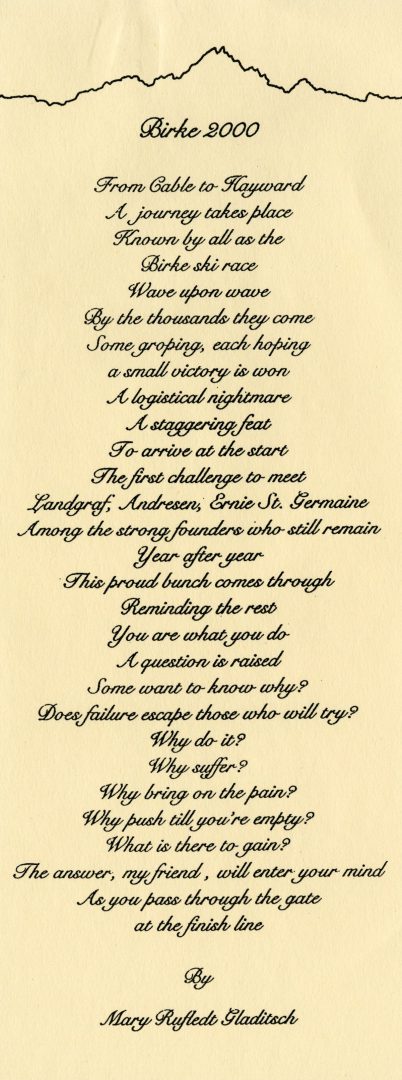 Birke 2000
From Cable to Hayward
A journey takes place
Known by all as the
Birke ski race
Wave upon wave
By the thousands they come
Some groping, each hoping
a small victory is won
A logistical nightmare
A staggering feat
To arrive at the start
The first challenge to meet
Landgraf, Andresen, Ernie St. Germaine
Among the strong founders who still remain
Year after year
This proud bunch comes through
Reminding the rest
You are what you do
A question is raised
Some want to know why?
Does failure escape those who will try?
Why do it?
Why suffer?
Why bring on the pain?
Why push till you're empty?
What is there to gain?
The answer, my friend , will enter your mind
As you pass through the gate
at the finish line
By
Mary Rufledt Gladitsch